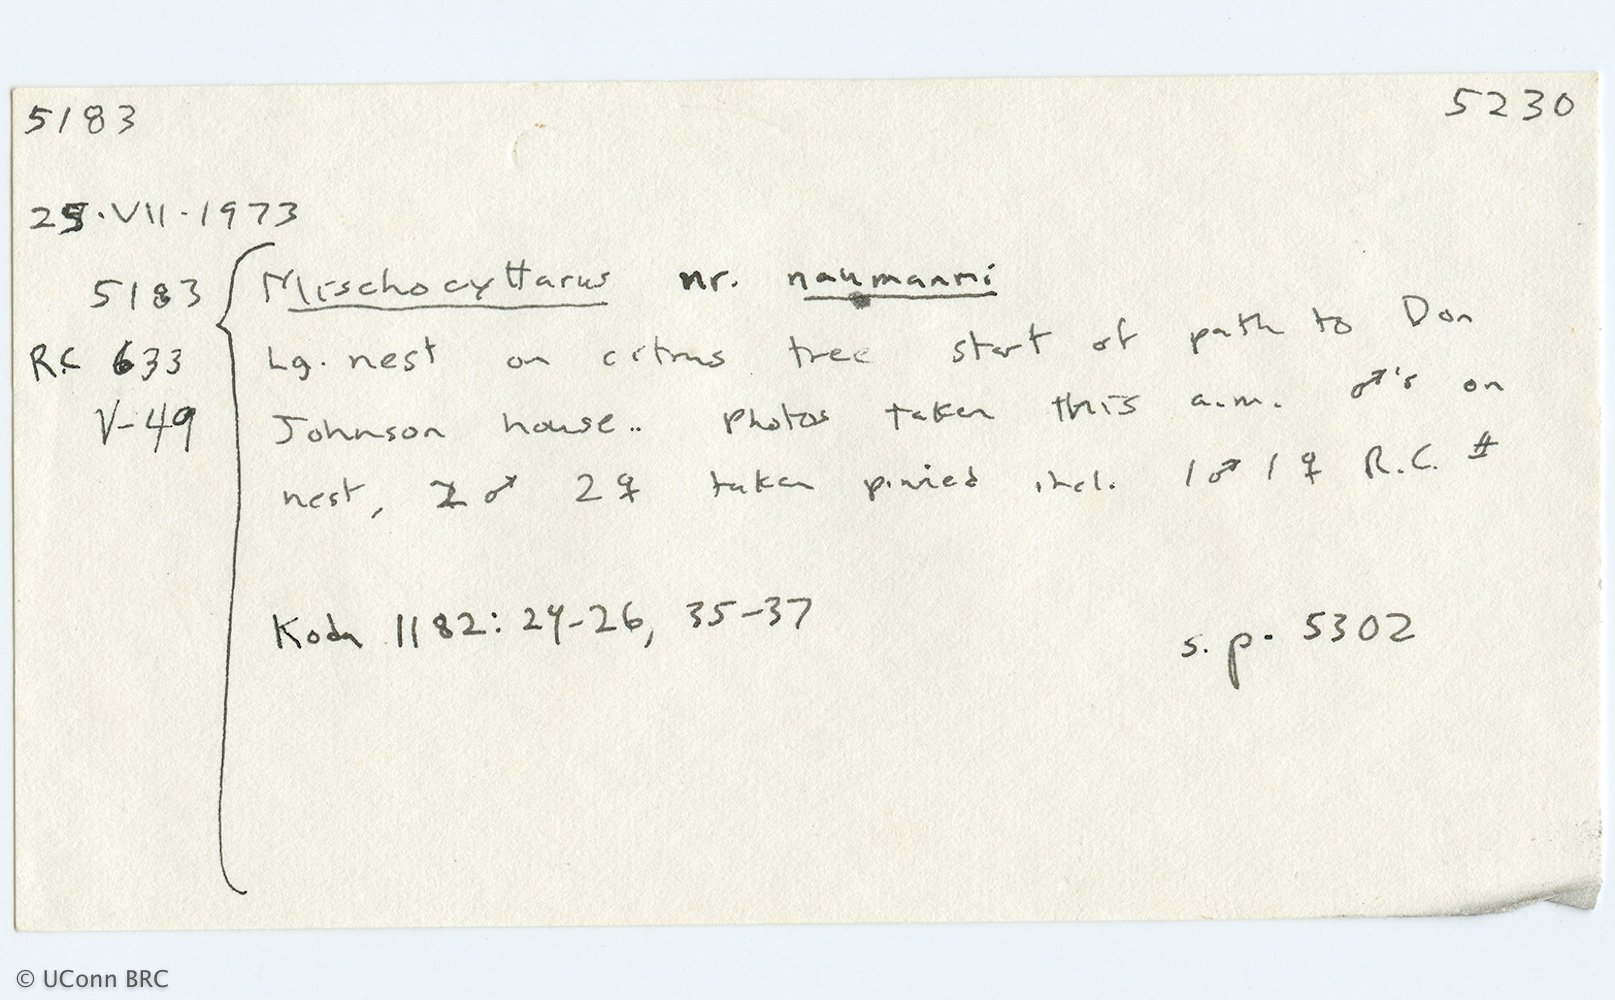 5183 5230
25·VII·1973
5183 Mischocyttarus nr. naumanni
R.C 633 Lg. nest on citrus tree start of path to Don
V-49 Johnson house.. Photos taken this a.m. ♂'s on
nest, 2♂ 2♀ taken pinned incl. 1♂ 1♀ R.C. #
Koda 1182: 24-26, 35-37
s.p. 5302
© UConn BRC